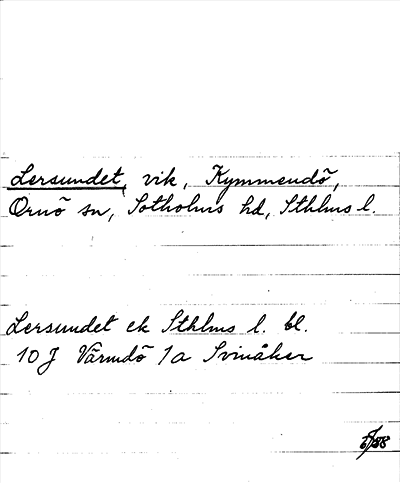 Lersundet, vik, Kymmendö,
Ornö sn, Sotholms hd, Sthlms l.
Lersundet ek Sthlms l. bl.
10 J Värmdö 1a Svinåker